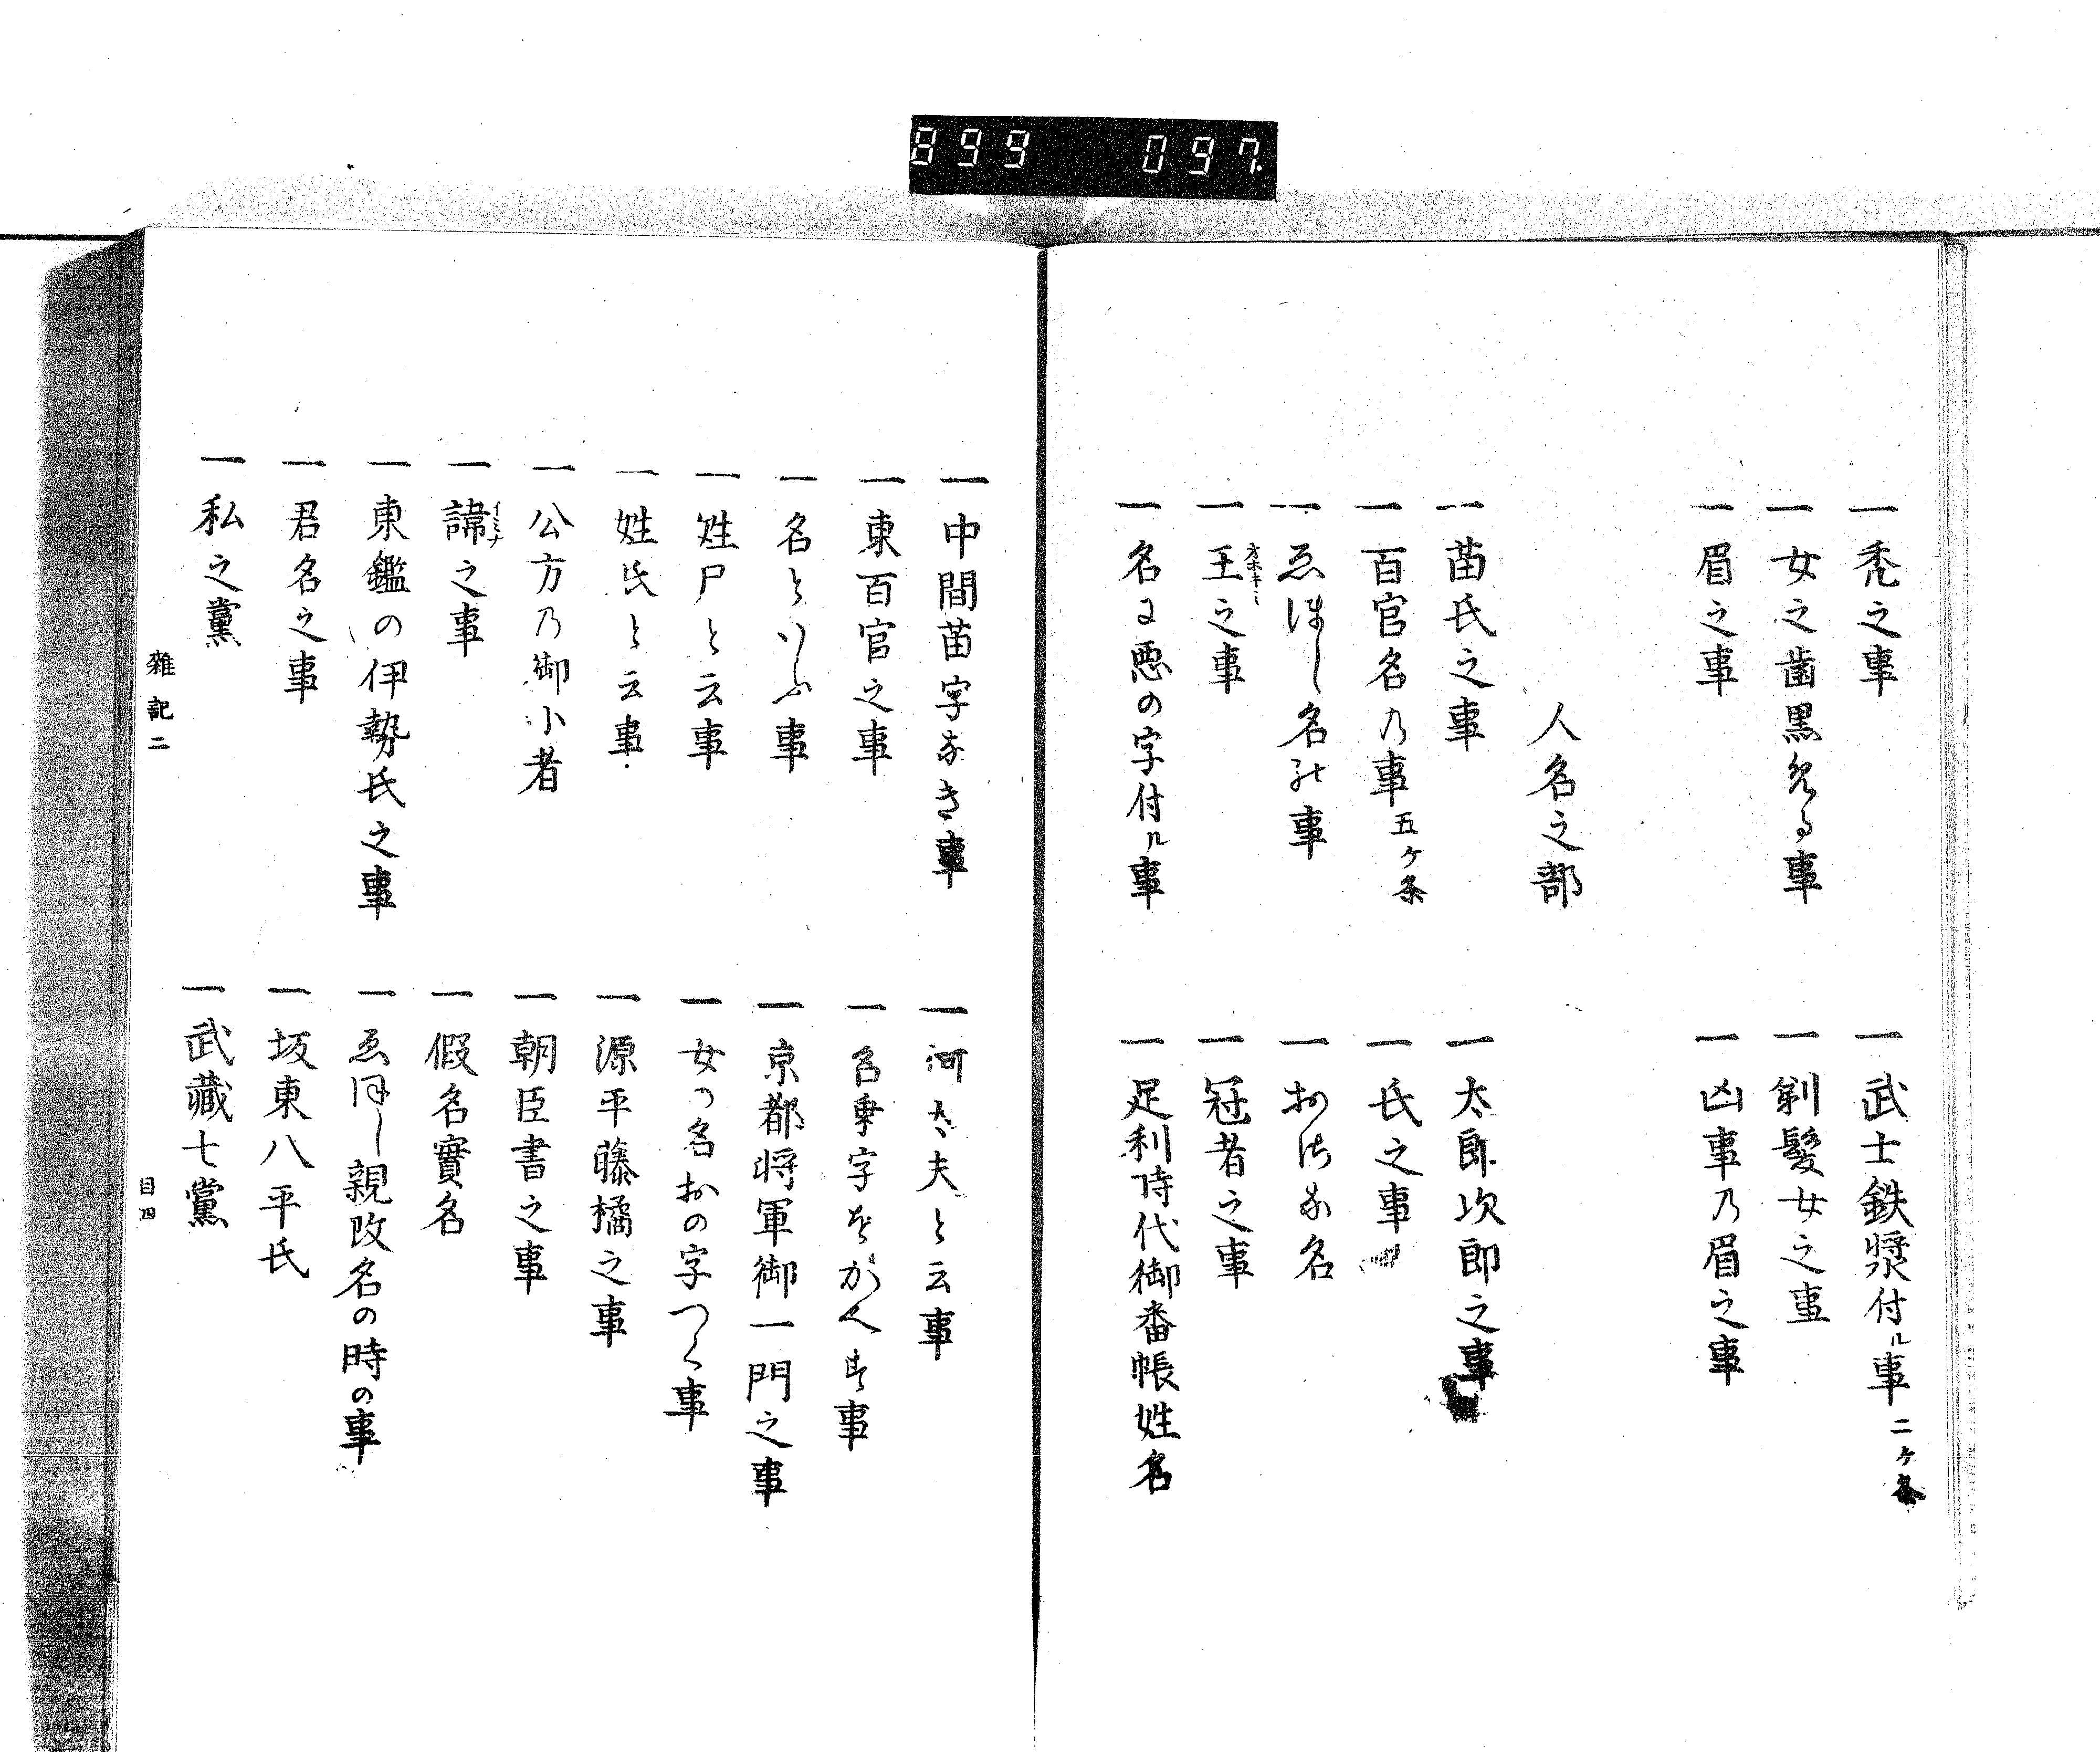 899 097
一 禿之事
一 武士鉄漿付ル事 二ヶ条
一 女之歯黒免る事
一 剃髪女之事
一 眉之事
一 凶事乃眉之事
人名之部
一 苗氏之事
一 太郎次郎之事
一 百官名乃事 五ケ条
一 氏之事
一 ゑほし名の事
一 おさな名
一 王之事
オホキミ
一 冠者之事
一 名に悪の字付ル事
一 足利時代御番帳姓名
一 中間苗字なき事
一 河太夫と云事
一 東百官之事
一 名乗字をかへす事
一 名といふ事
一 京都将軍御一門之事
一 姓尸と云事
一 女の名おの字つく事
一 姓氏と云事
一 源平藤橘之事
一 公方乃御小者
一 朝臣書之事
一 諱之事
イミナ
一 假名實名
一 東鑑の伊勢氏之事
一 ゑほし親改名の時の事
一 君名之事
一 坂東八平氏
一 私之黨
一 武藏七黨
雜記二
目四